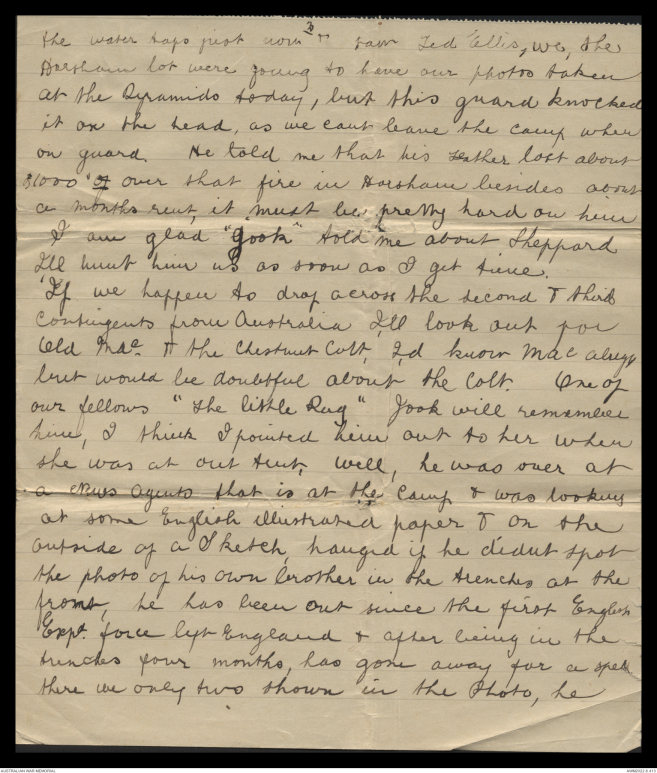 the water taps just now & saw Ted Ellis, we, the
Horsham lot were going to have our photos taken
at the Pyramids today, but this guard knocked
it on the head, as we cant leave the camp when
on guard. He told me that his father lost about
£1000 " of over that fire in Horsham besides about
a months rent, it must be pretty hard on him
I am glad "Jook" told me about Sheppard
I'll hunt him up as soon as I get time.
If we happen to drop across the second & third
contingents from Australia I'll look out for
Old Mac. & the Chestnut Colt, I,d know Mac
but would be doubtful about the Colt. One of
our fellows "the little Rug" Jook will remember
him, I think I pointed him out to her when
she was at our tent, well, he was over at
a News agents that is at the Camp & was looking
at some English illustrated paper & on the
outside of a Sketch, hanged if he didnt spot
the photo of his own brother in the trenches at the
front, he has been out since the first English
Expt. force left England & after being in the
trenches four months, has gone away for a spell
there were only two shown in the Photo, he
AUSTRALIAN WAR MEMORIAL